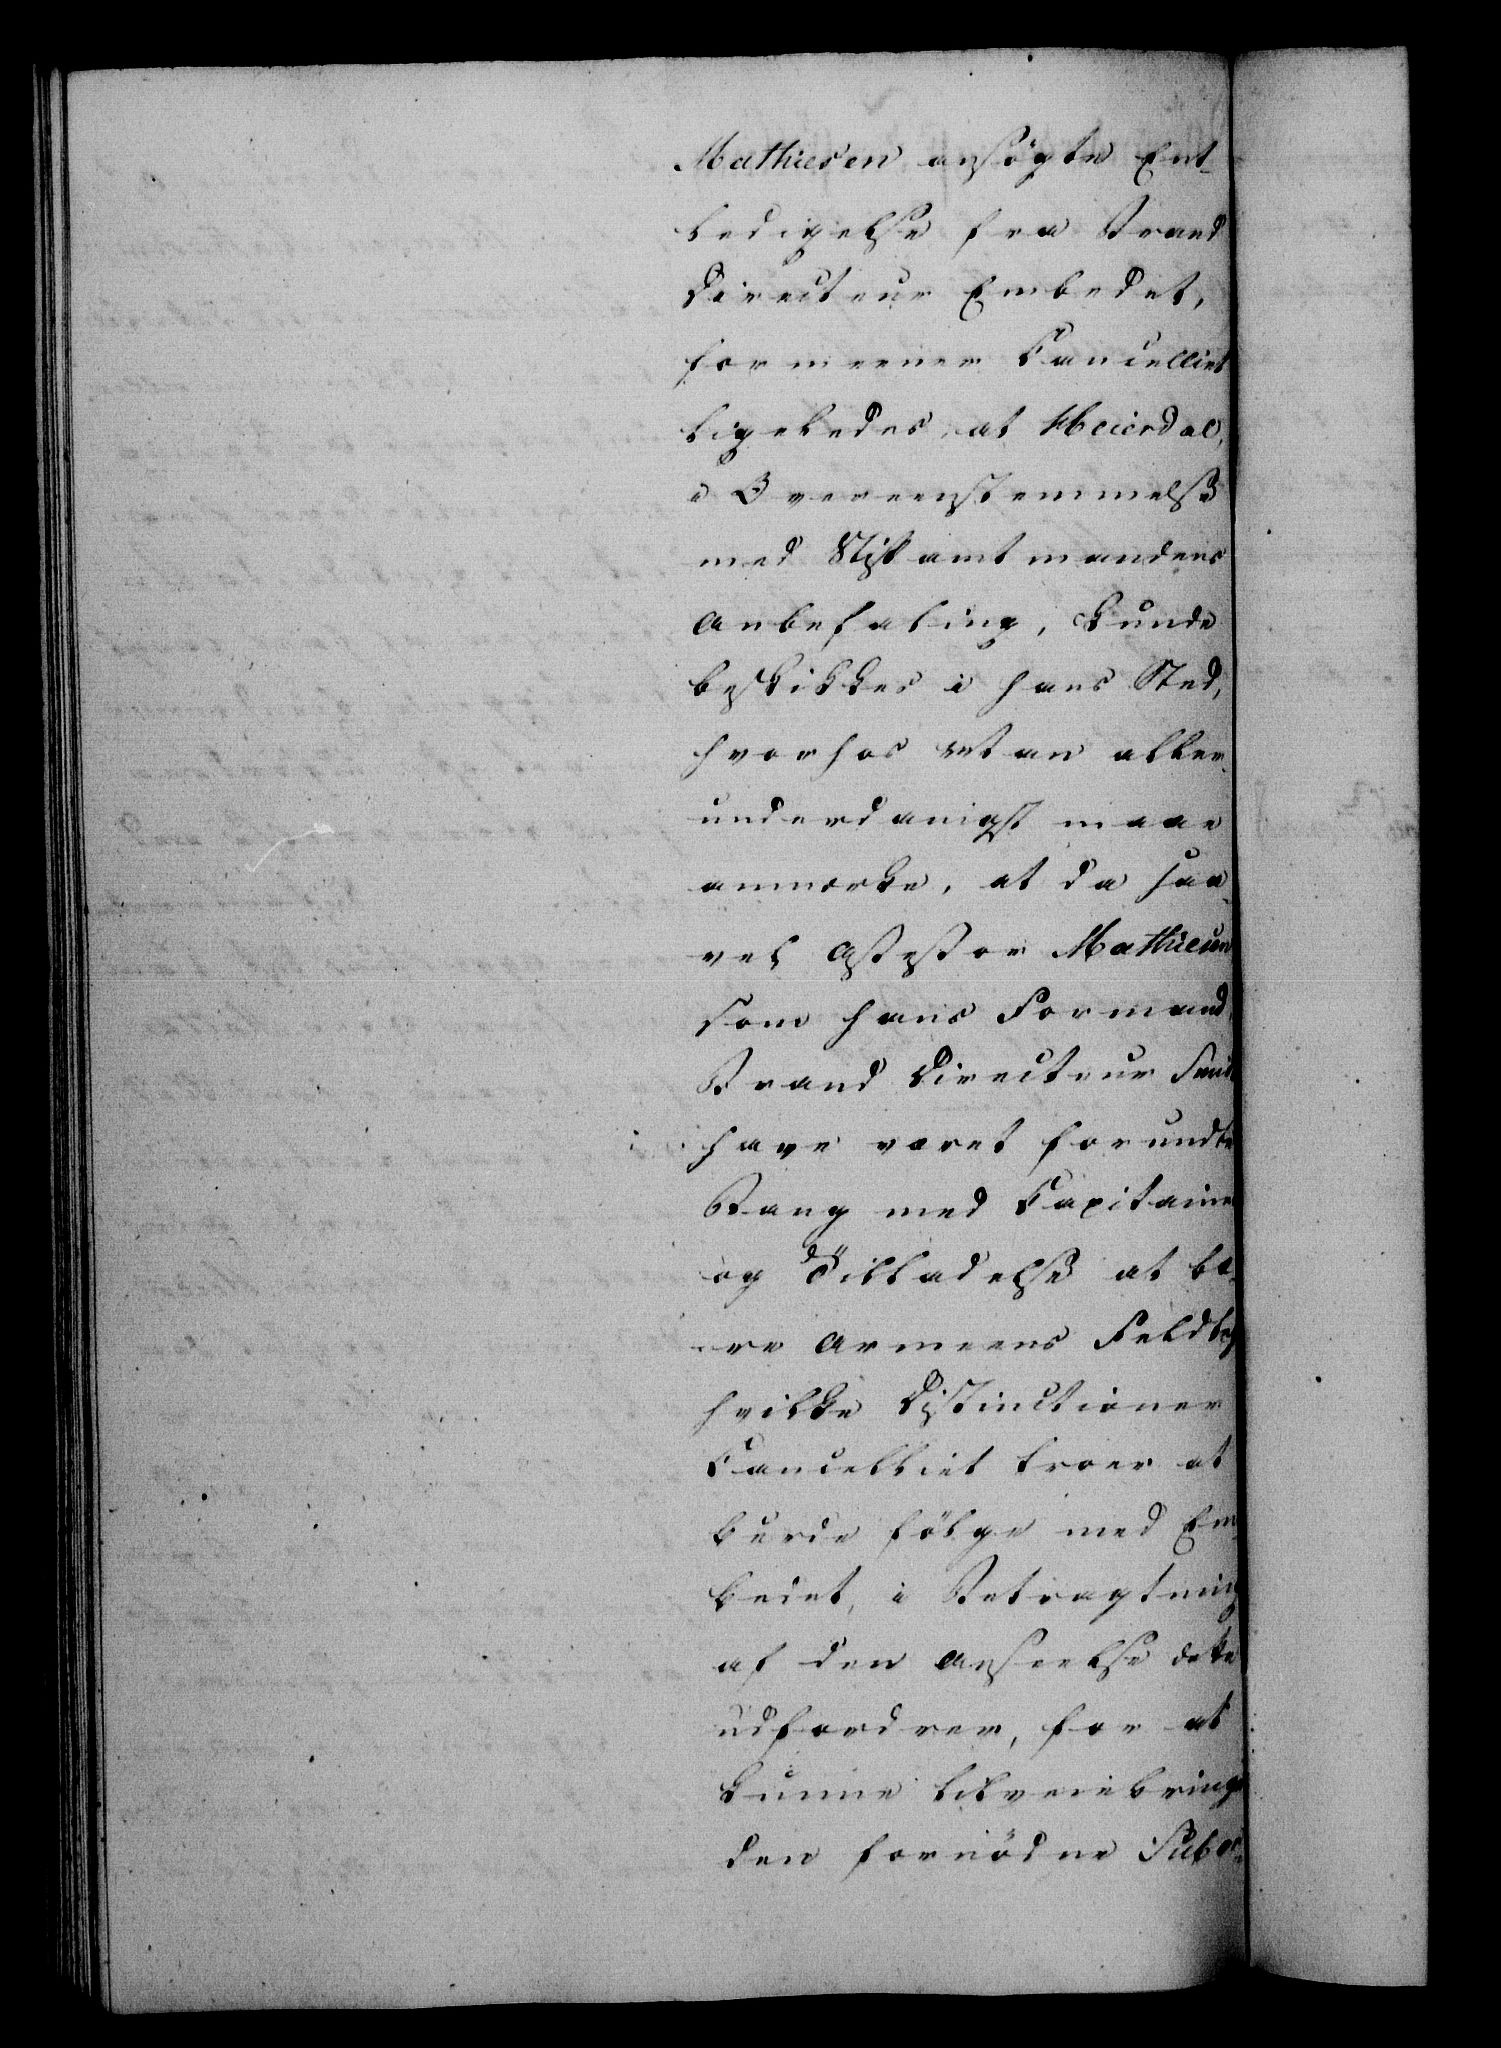 Mathiesen ansögte Ent-
ledigelse fra Brand
Directeur Embedet,
formeener Cancelliet
ligeledes, at Heierdal,
i Overeenstemmelse
med Stiftamtmandens
Anbefaling, kunde
beskikkes i hans Sted,
hvorhos man aller-
underdanigst maae
anmærke, at da saa-
vel Assessor Mathiesen
som hans Formand,
Brand Directeur
have været forundte
Rang med Capitainer
og Tilladelse at bæ-
re Armeens Feldtegn
hvilke Distinctioner
Cancelliet troer at
burde fölge med Em-
bedet, i Betragtning
af den Anseelse dette
udfordrer, for at
kunne tilveiebringe
den fornödne Subor-